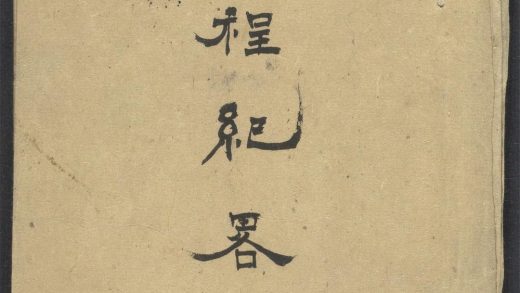 程紀畧